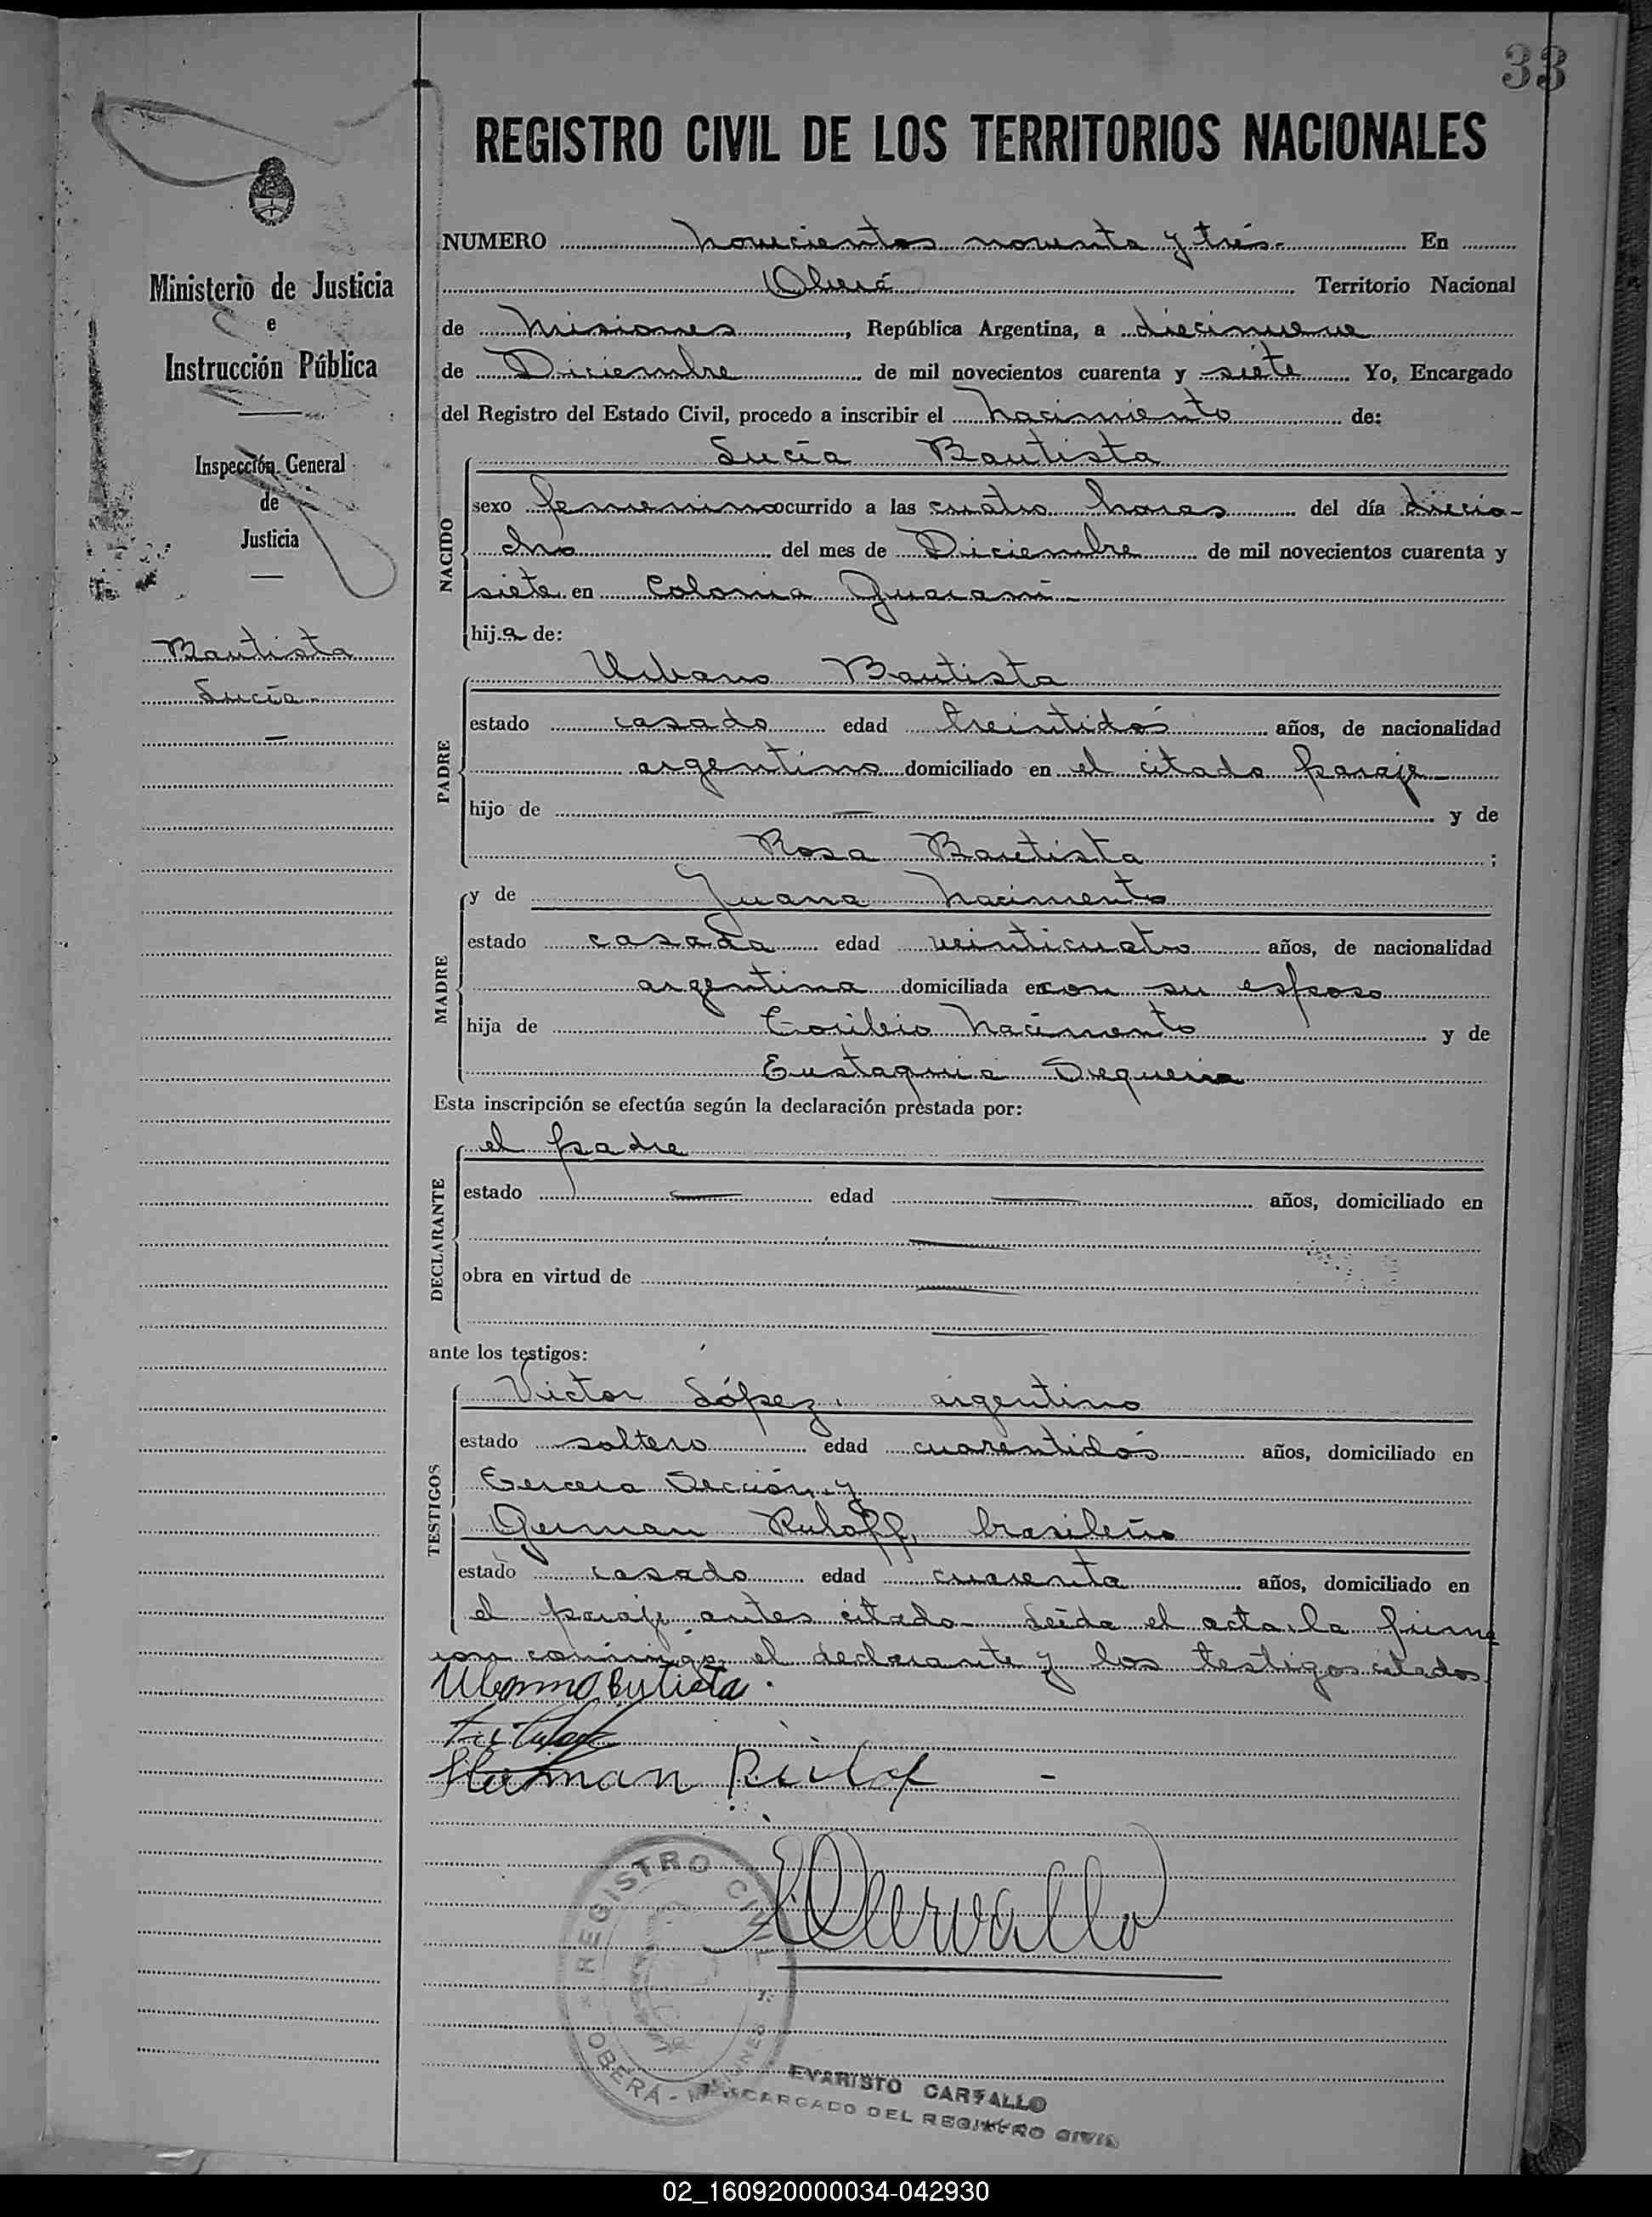 33
REGISTRO CIVIL DE LOS TERRITORIOS NACIONALES
Ministerio de Justicia
e
Instrucción Pública
Inspección General
de
Justicia
Bautista
Lucía
NUMERO novecientos noventa y trés.- En
Oberá Territorio Nacional
de Misiones, República Argentina, a diecinueve
de Diciembre de mil novecientos cuarenta y siete Yo, Encargado
del Registro del Estado Civil, procedo a inscribir el nacimiento de:
NACIDO
Lucía Bautista
sexo femenino ocurrido a las cuatro horas del día diecio-
cho del mes de Diciembre de mil novecientos cuarenta y
siete en Colonia Guaraní -
hija de:
PADRE
Urbano Bautista
estado casado edad treintidós años, de nacionalidad
argentino domiciliado en el citado paraje
hijo de — y de
Rosa Bautista ;
MADRE
y de Juana Nacimento
estado casada edad veinticuatro años, de nacionalidad
argentina domiciliada en con su esposo
hija de Nacimento y de
Eustaquia
Esta inscripción se efectúa según la declaración prestada por:
DECLARANTE
el padre
estado — edad — años, domiciliado en
—
obra en virtud de —
—
ante los testigos:
TESTIGOS
Victor López, argentino
estado soltero edad cuarentidós años, domiciliado en
Tercera Sección y
German Ruloff, brasileño
estado casado edad cuarenta años, domiciliado en
el paraje antes citado - Leída el acta, la firma
ron conmigo, el declarante y los testigos citados.
REGISTRO CIVIL
OBERÁ - MISIONES
EVARISTO CARVALLO
ENCARGADO DEL REGISTRO CIVIL
02_160920000034-042930